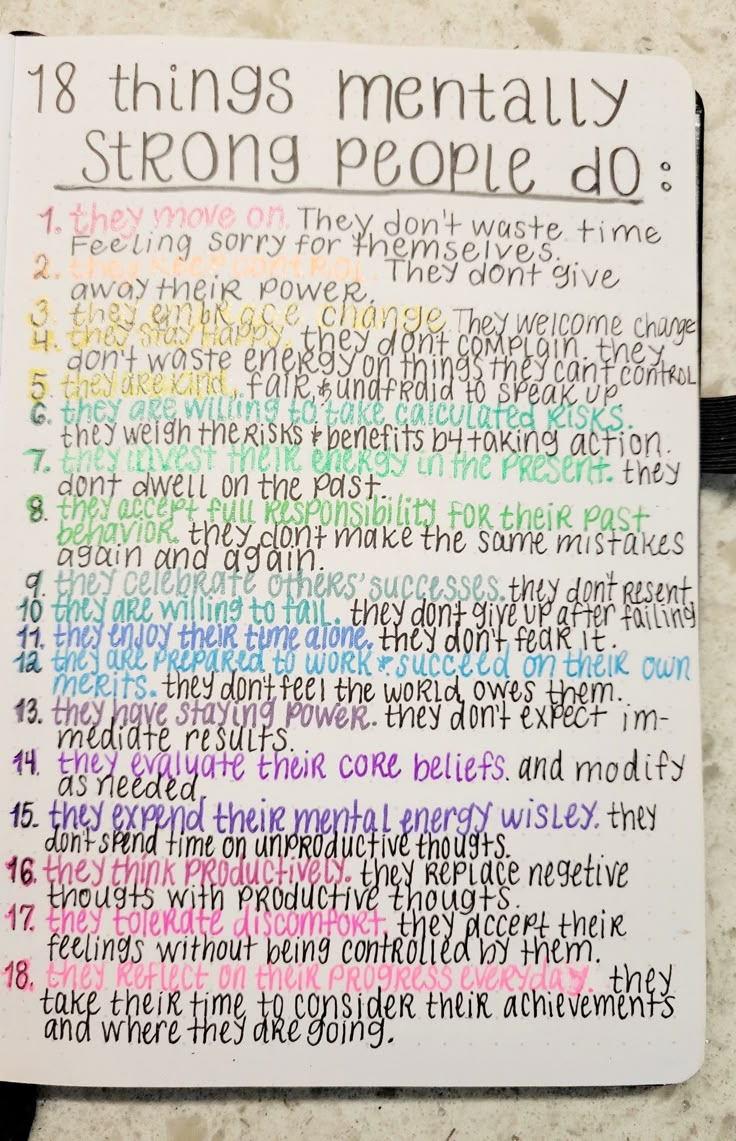 18 things mentally
strong people do:
1. they move on. They don't waste time
feeling sorry for themselves.
2. they keep control. They dont give
away their power.
3. they embrace change. They welcome change
4. they stay happy. they dont complain. they
don't waste energy on things they cant control
5. they are kind, fair, & undfraid to speak up
6. they are willing to take calculated risks.
they weigh the risks & benefits b4 taking action.
7. they invest their energy in the present. they
dont dwell on the past.
8. they accept full responsibility for their past
behavior. they dont make the same mistakes
again and again.
9. they celebrate others' successes. they don't resent.
10 they are willing to fail. they dont give up after failing
11. they enjoy their time alone. they don't fear it.
12 they are prepared to work & succeed on their own
merits. they don't feel the world owes them.
13. they have staying power. they don't expect im-
mediate results.
14. they evaluate their core beliefs. and modify
as needed.
15. they expend their mental energy wisley. they
don't spend time on unproductive thougts.
16. they think productively. they replace negetive
thougts with productive thougts.
17. they tolerate discomfort. they accept their
feelings without being controlled by them.
18. they reflect on their progress everyday. they
take their time to consider their achievements
and where they are going.